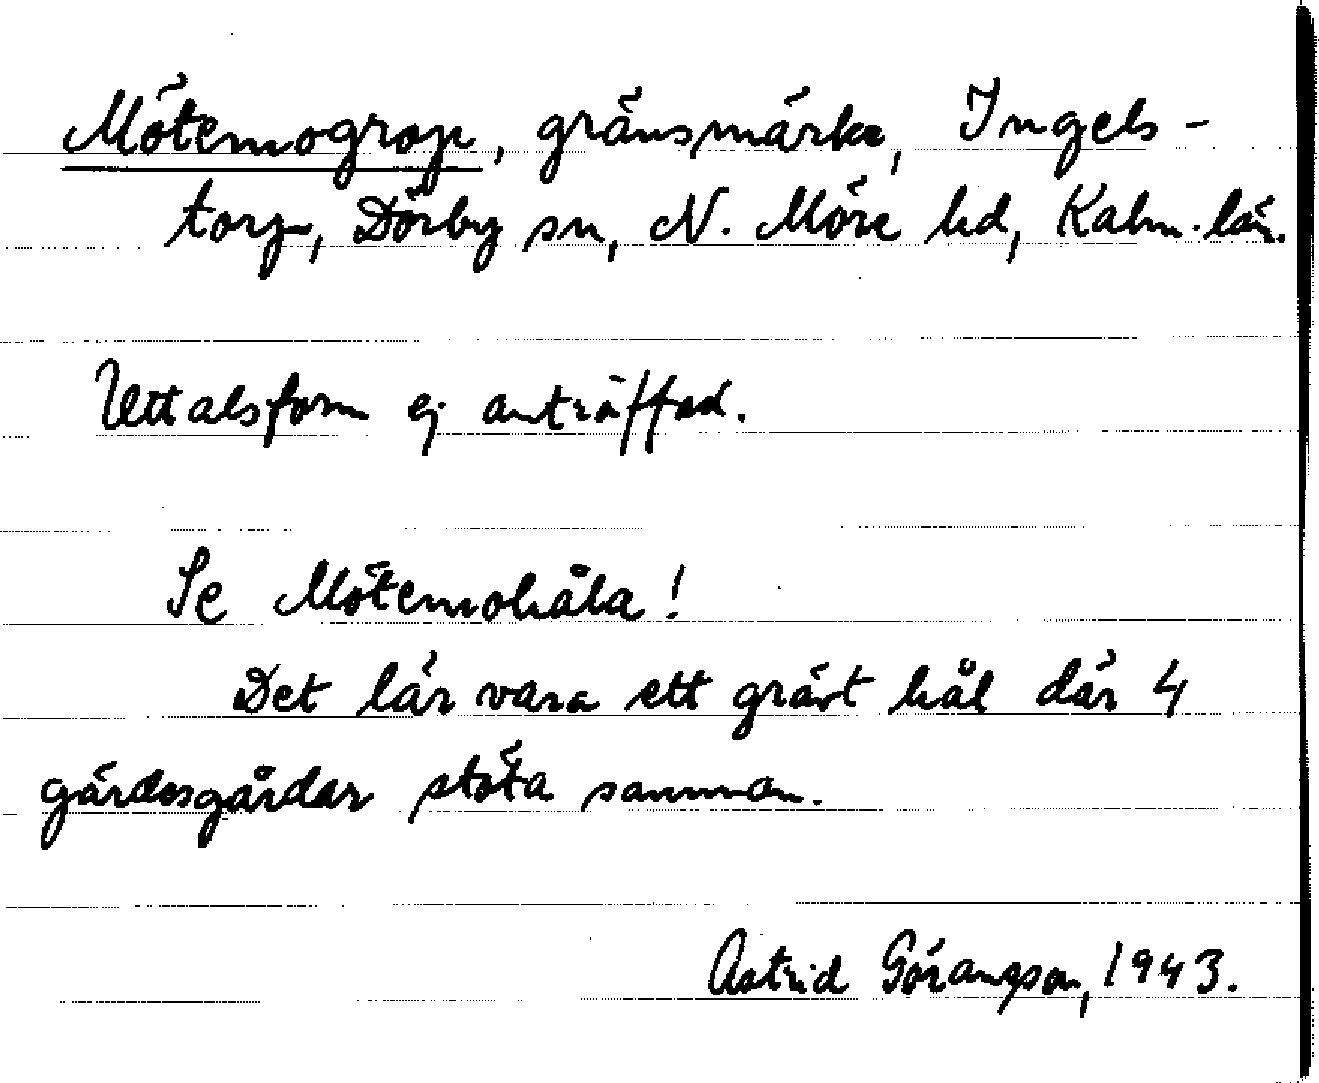 Mötemogrop, gränsmärke, Ingels-
torp, Dörby sn, N. Möre hd, Kalm. län.
Uttalsform ej anträffad.
Se Mötemohåla!
Det lär vara ett grävt hål där 4
gärdesgårdar stöta samman.
Astrid Göranzson, 1943.